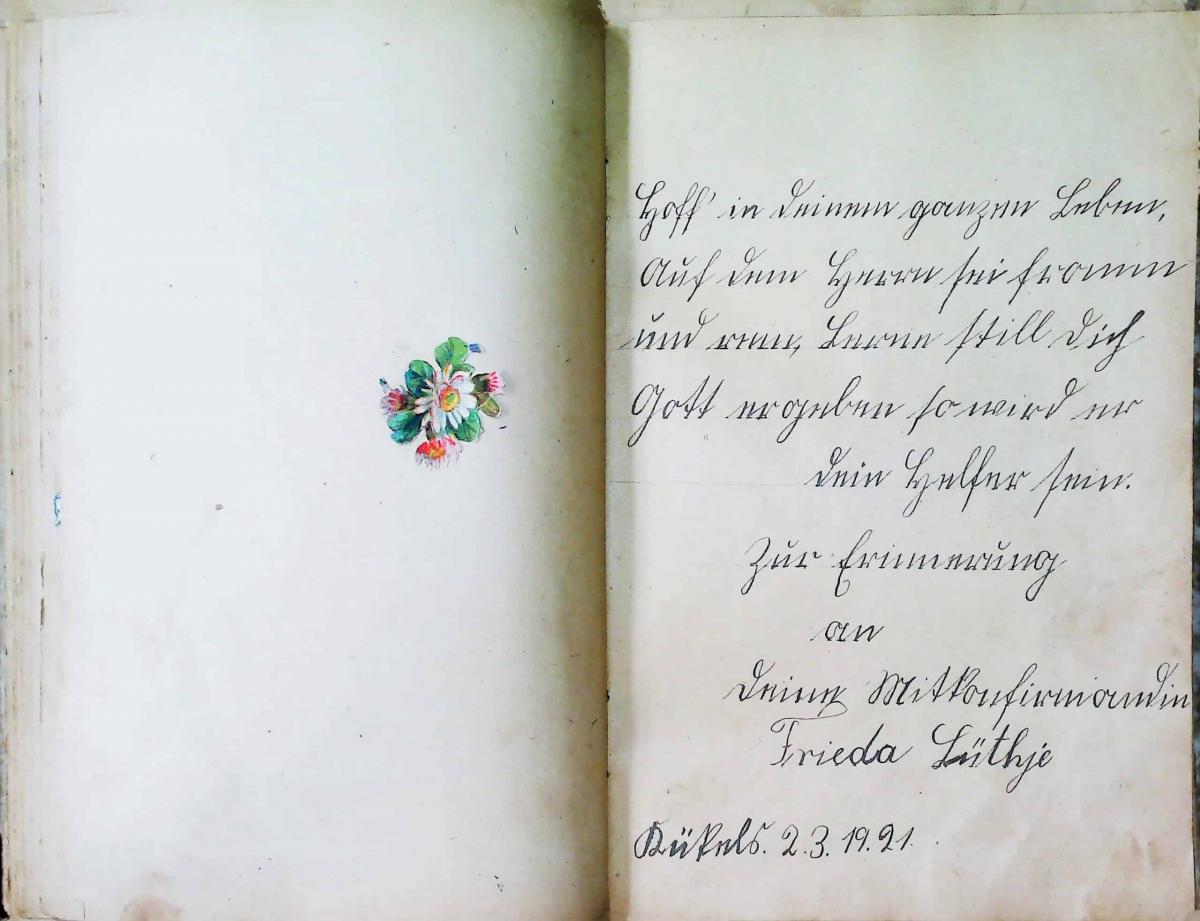 Hoff' in deinem ganzen Leben,
Auf dem Herrn sei fromm
und rein, Lerne still dich
Gott ergeben so wird er
dein Helfer sein.
Zur Erinnerung
an
deine Mitkonfirmandin
Frieda Lüthje
Kükels. 2.3.19.21.